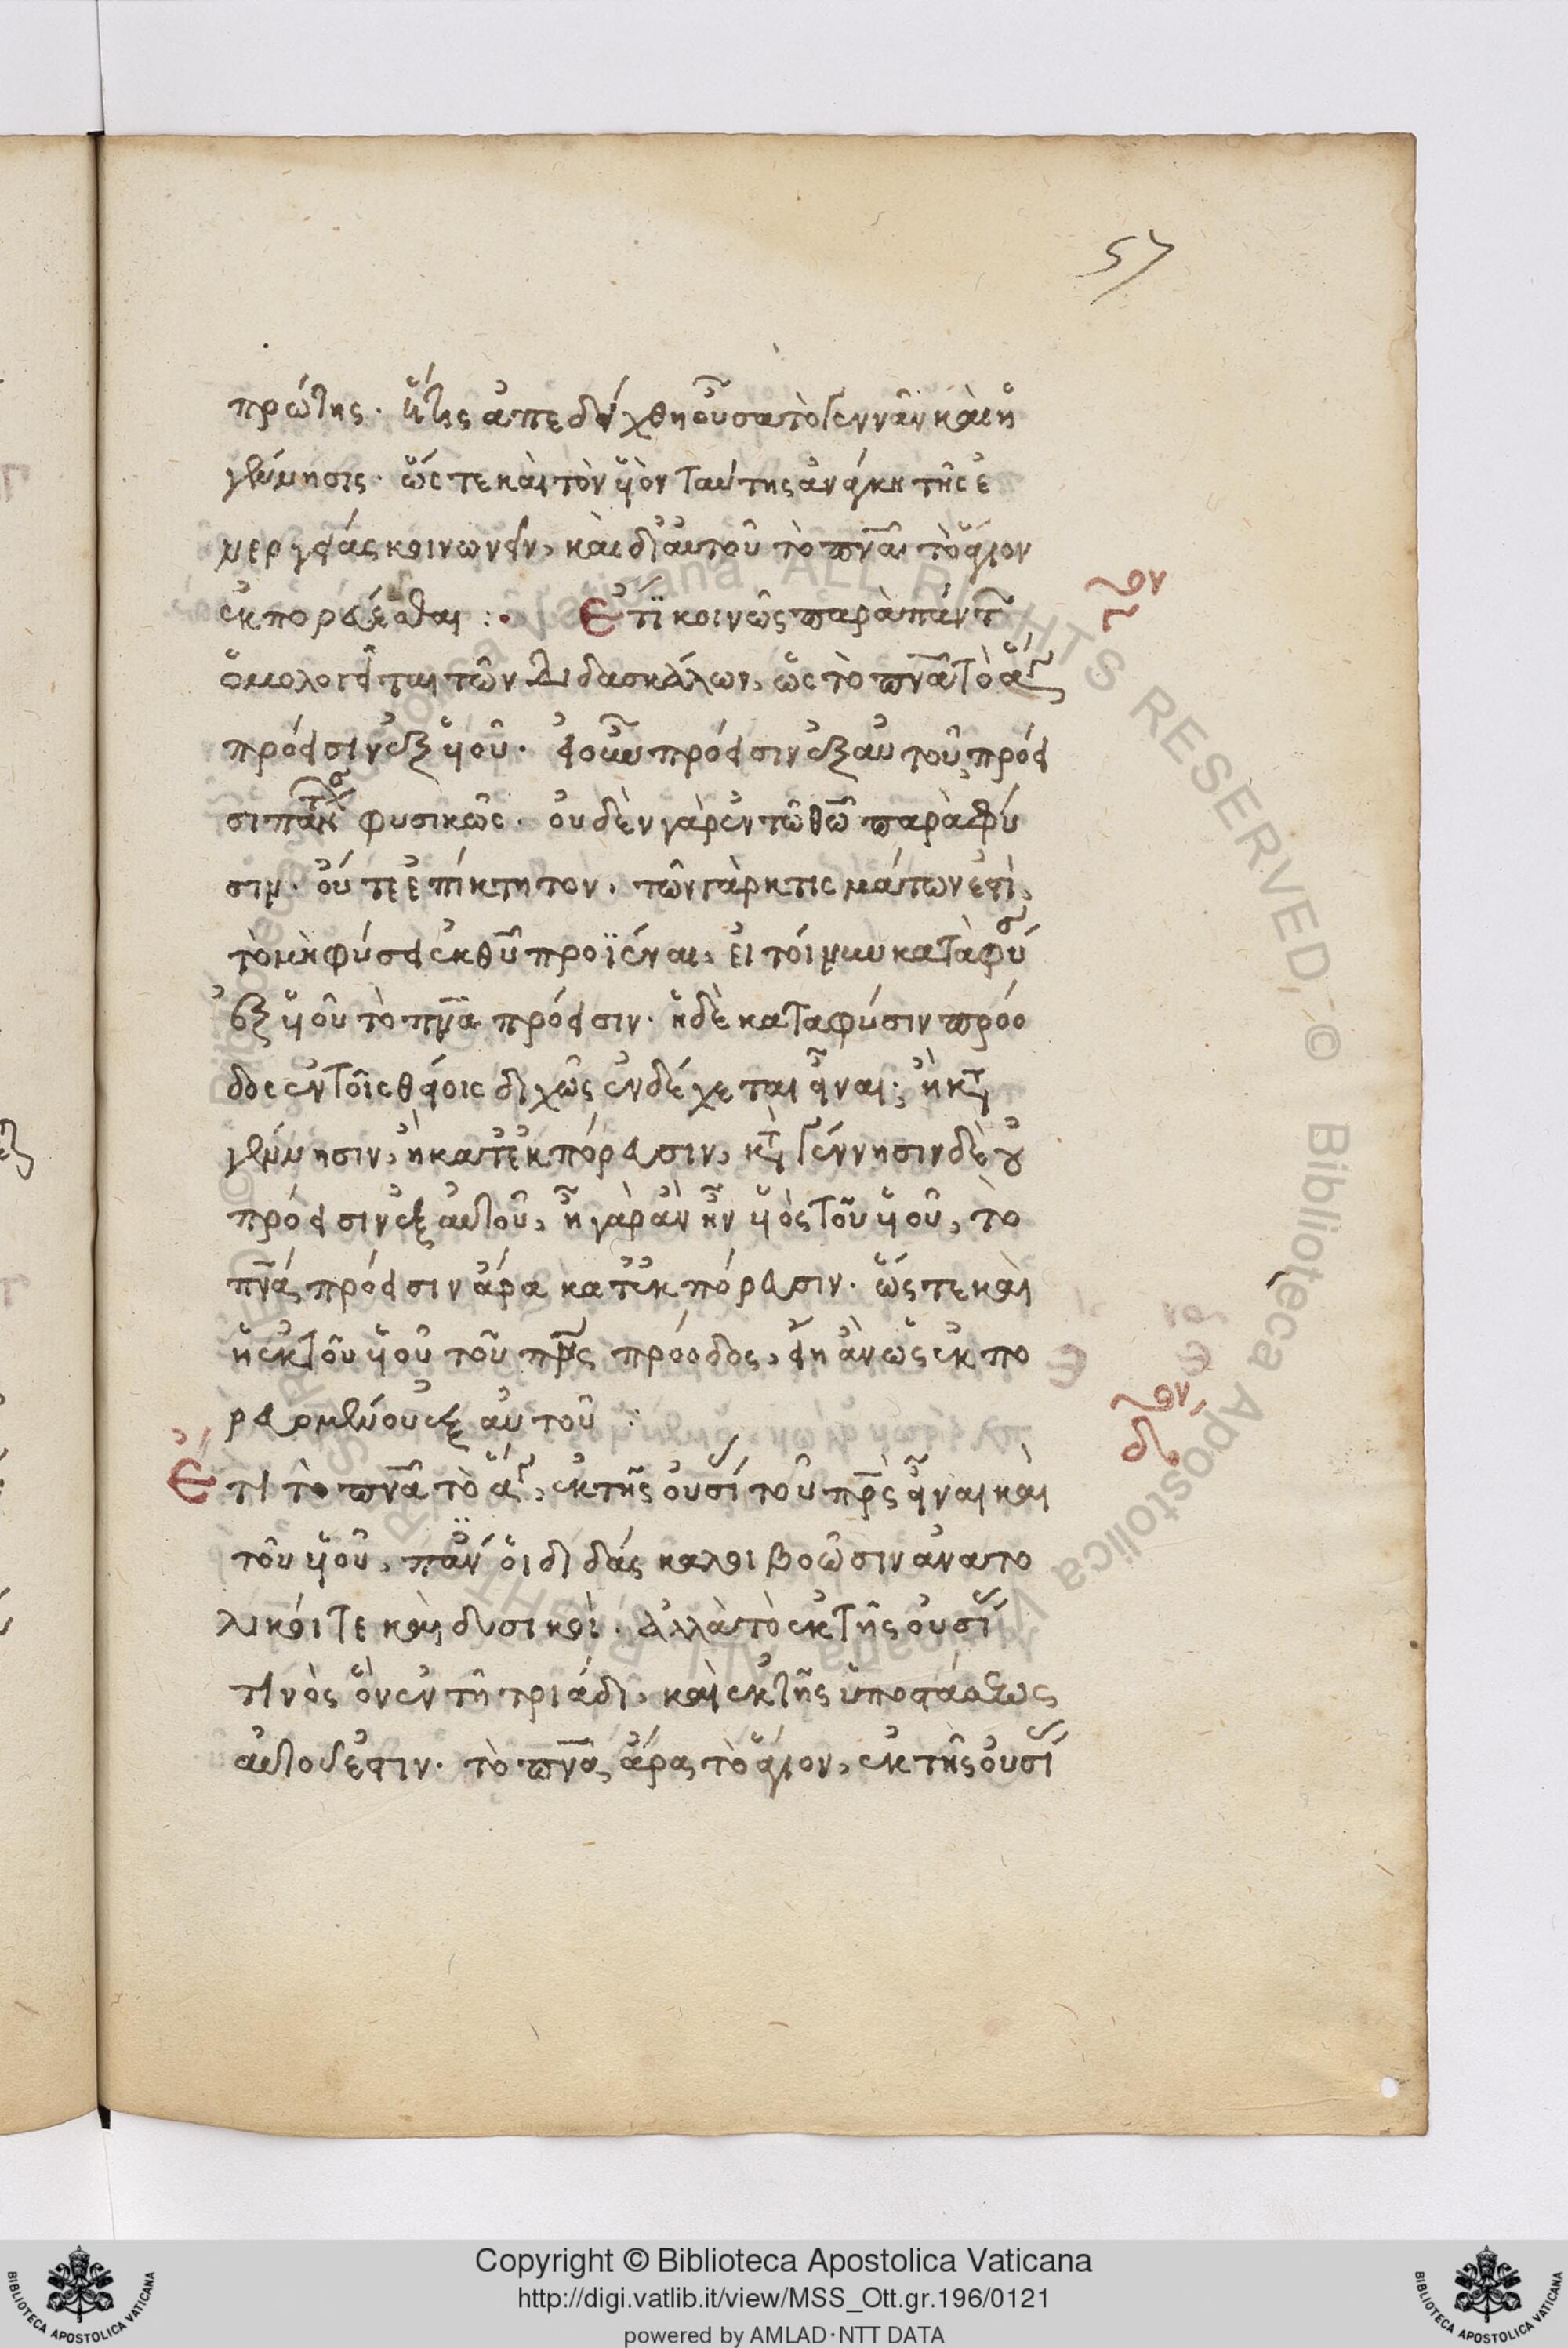 57
πρώτης. ἥτις ἀπεδείχθη οὖσα τὸ γεννᾶν καὶ ἡ
γέννησις. ὥς τε καὶ τὸν υἱὸν ταύτης ἀνάγκη τῆς ἐ
νεργείας κοινωνεῖν, καὶ δι αὐτοῦ τὸ πνᾶ τὸ ἅγιον
ἐκπορεύεσθαι :. Ἔτι κοινῶς παρὰ πάντ
ὁμολογεῖται τῶν διδασκάλων, ὡς τὸ πνᾶ τὸ ἅγ
πρόεισιν ἐξ υἱοῦ. εἰ οὖν πρόεισιν ἐξ αὐτοῦ, πρόει
σι φυσικῶς. οὐδὲν γὰρ ἐν τῶ θῶ παρὰ φύ
σιν. οὔτε ἐπίκτητον. τῶν γὰρ κτισμάτων ἐστὶ,
τὸ μὴ φύσει ἐκ θῦ προϊέναι. εἰ τοίνυν κατὰ φύσ
ἐξ υἱοῦ τὸ πνᾶ πρόεισιν. ἡ δὲ κατα φύσιν πρόο
δος ἐν τοῖς θείοις διχῶς ἐνδέχεται εἶναι, ἢ κτ
γέννησιν, ἢ κατ ἐκπόρευσιν, κτ γέννησιν δὲ οὐ
πρόεισιν ἐξ αὐτοῦ, ἦ γὰρ ἂν ἦν υἱὸς τοῦ υἱοῦ, τὸ
πνᾶ πρόεισιν ἄρα κατ ἐκπόρευσιν. ὥς τε καὶ
ἡ ἐκ τοῦ υἱοῦ τοῦ πνς πρόοδος, εἴη ἂν ὡς ἐκπο
ρευομένου ἐξ αὐτοῦ :
Ἔτι τὸ πνᾶ τὸ ἅγ, ἐκ τῆς οὐσί τοῦ πρς εἶναι καὶ
τοῦ υἱοῦ, πάν οἱ διδάσκαλοι βοῶσιν ἀνατο
λικοί τε καὶ δυσικοί. ἀλλὰ τὸ ἐκ τῆς οὐσί
τινὸς ὂν ἐν τῆ τριάδι, καὶ ἐκ τῆς ὑποστάσεως
αὐτοῦ ἐστιν. τὸ πνᾶ ἄρα τὸ ἅγιον, ἐκ τῆς οὐσί
Copyright © Biblioteca Apostolica Vaticana
http://digi.vatlib.it/view/MSS_Ott.gr.196/0121
powered by AMLAD·NTT DATA